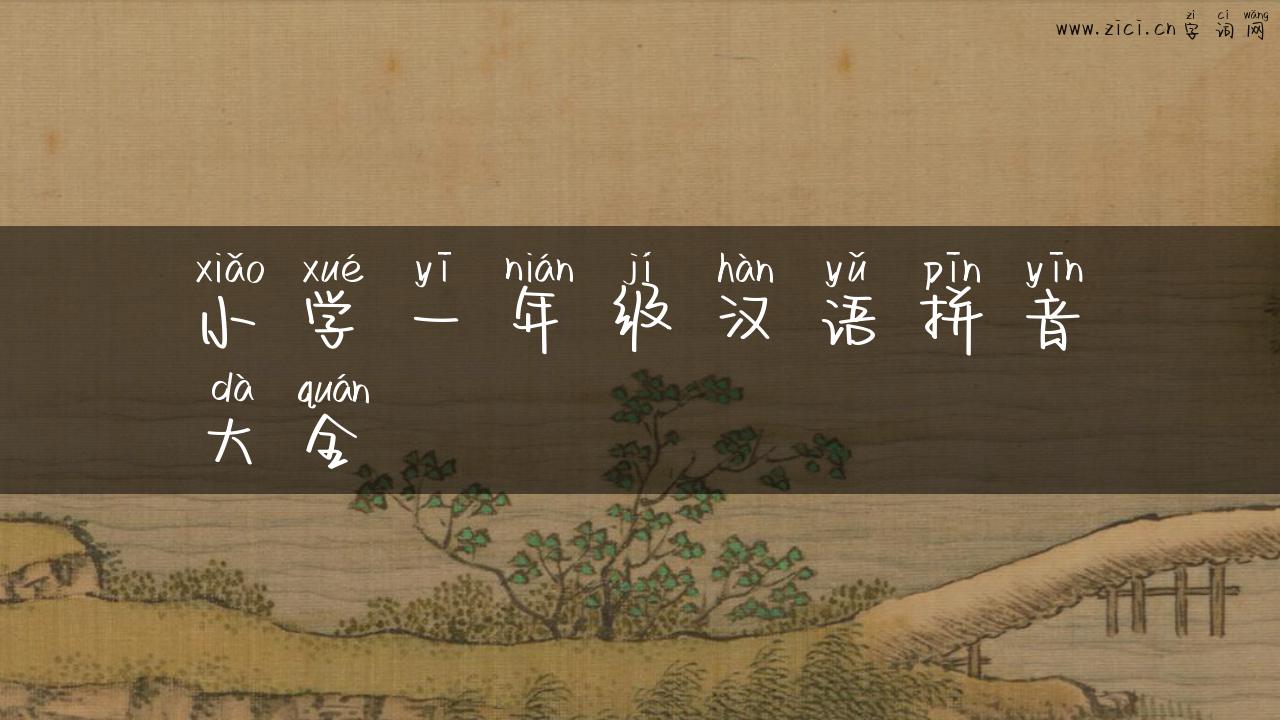 zì cí wǎng
www.zici.cn 字词网
xiǎo xué yī nián jí hàn yǔ pīn yīn
小学一年级汉语拼音
dà quán
大全